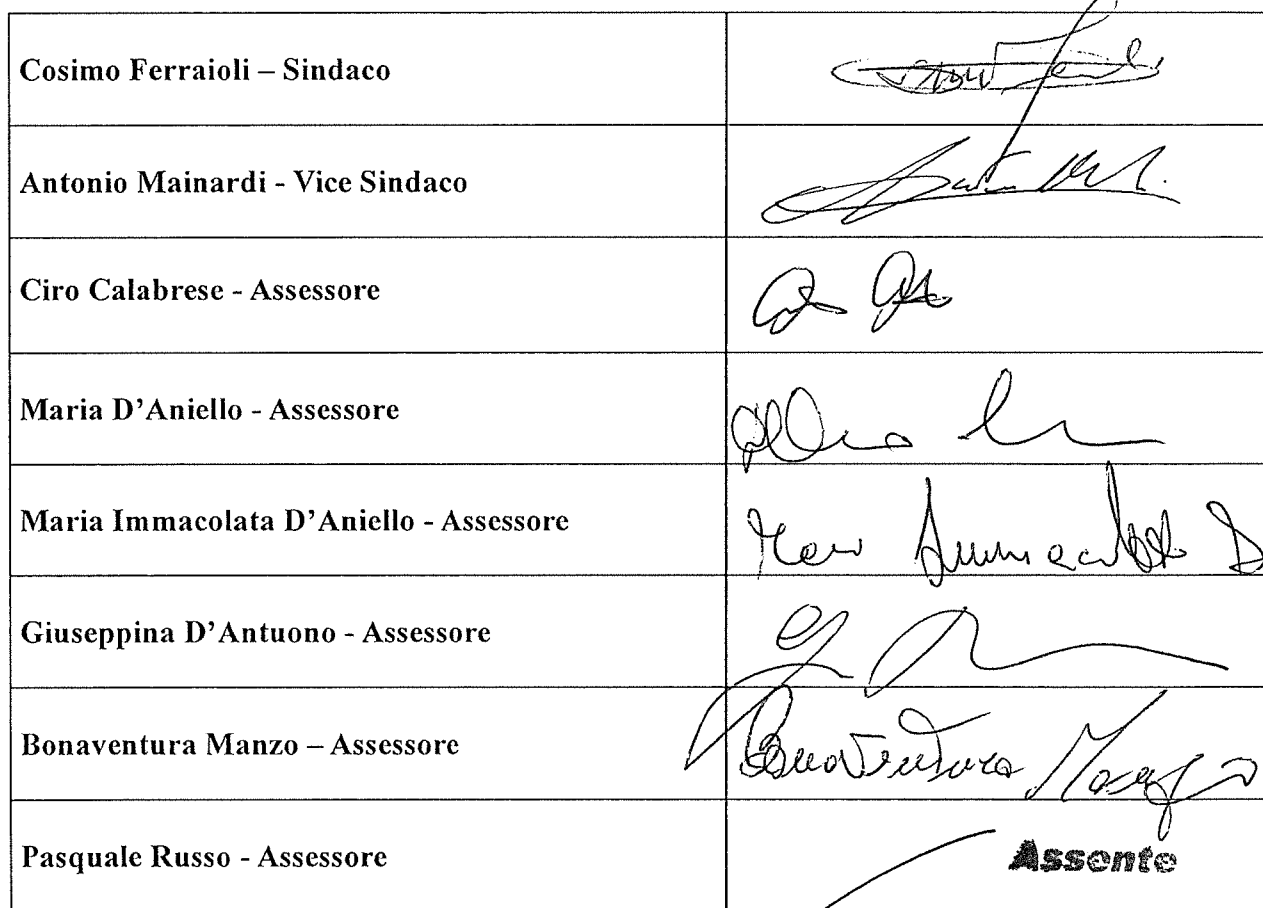 Cosimo Ferraioli – Sindaco
Antonio Mainardi - Vice Sindaco
Ciro Calabrese - Assessore
Maria D'Aniello - Assessore
Maria Immacolata D'Aniello - Assessore
Giuseppina D'Antuono - Assessore
Bonaventura Manzo – Assessore
Bonaventura Manzo
Pasquale Russo - Assessore
Assente